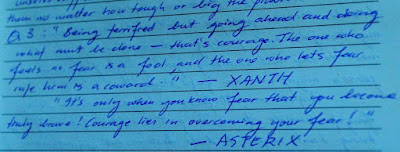 them no matter how tough or big the
Q3: "Being terrified but going ahead and doing
what must be done – that's courage. The one who
feels no fear is a fool, and the one who lets fear
rule him is a coward." – XANTH
"It's only when you know fear that you become
truly brave! Courage lies in overcoming your fear!"
– ASTERIX